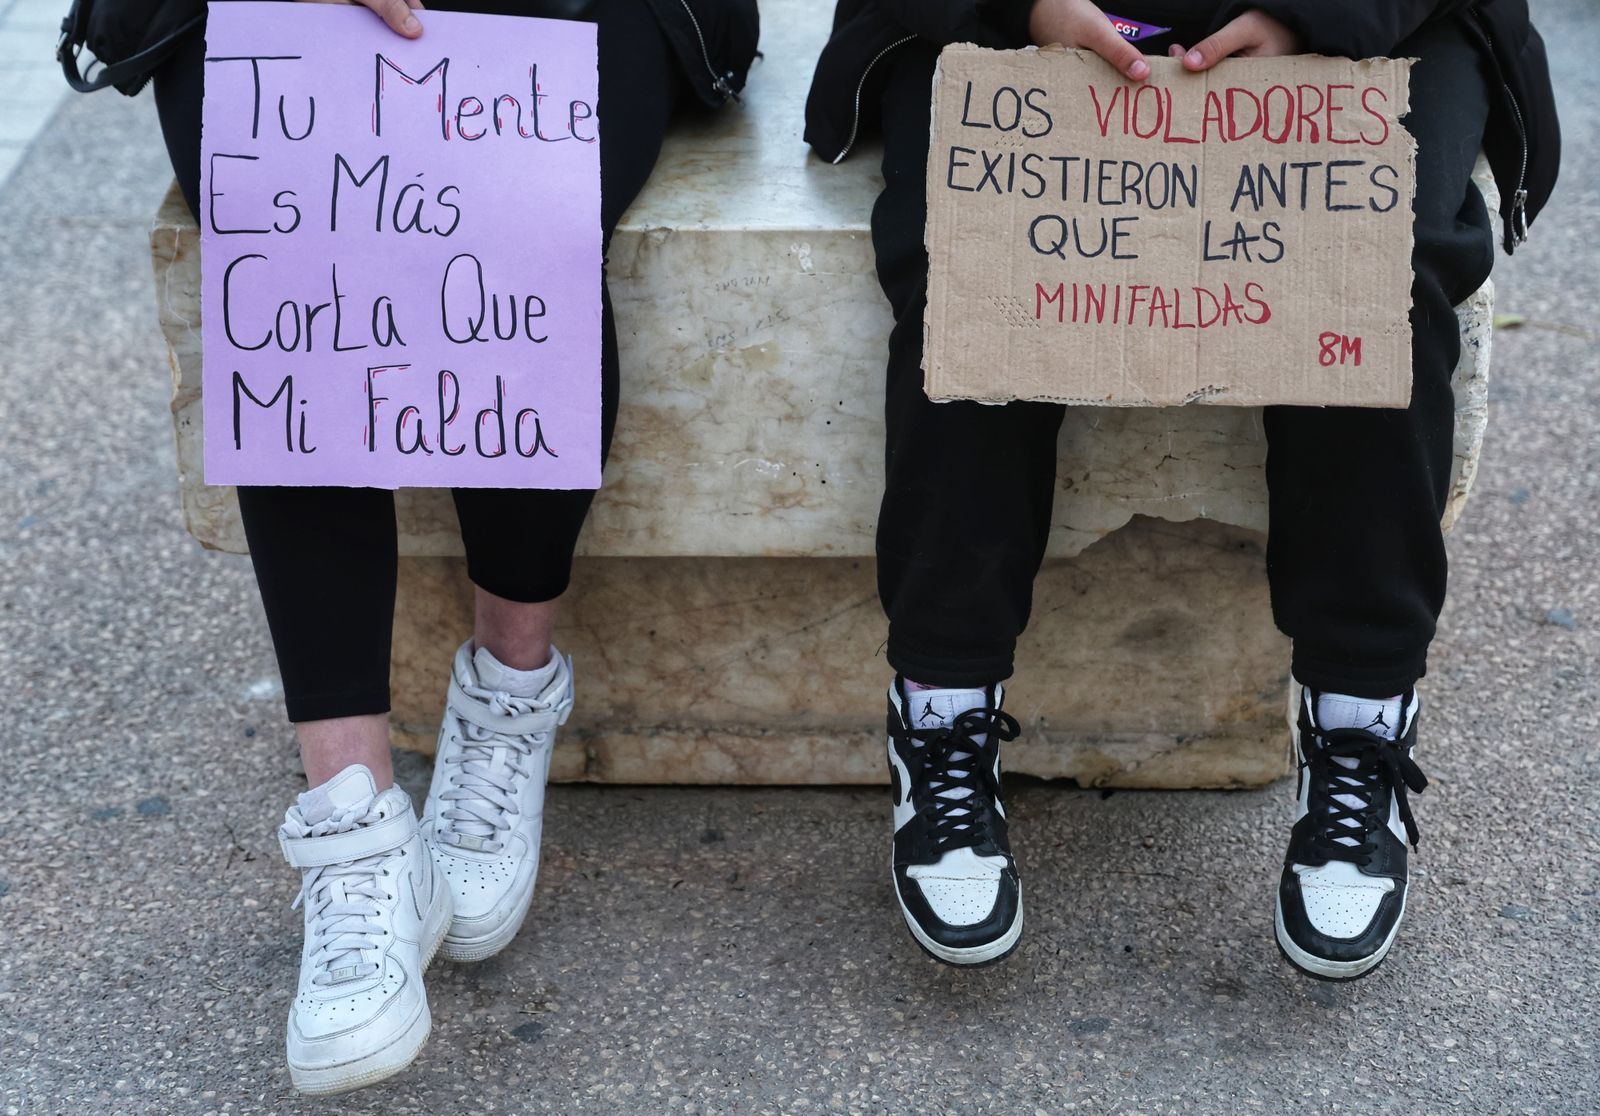 Tu Mente
Es Más
Corta Que
Mi Falda
CGT
LOS VIOLADORES
EXISTIERON ANTES
QUE LAS
MINIFALDAS
8M
AIR